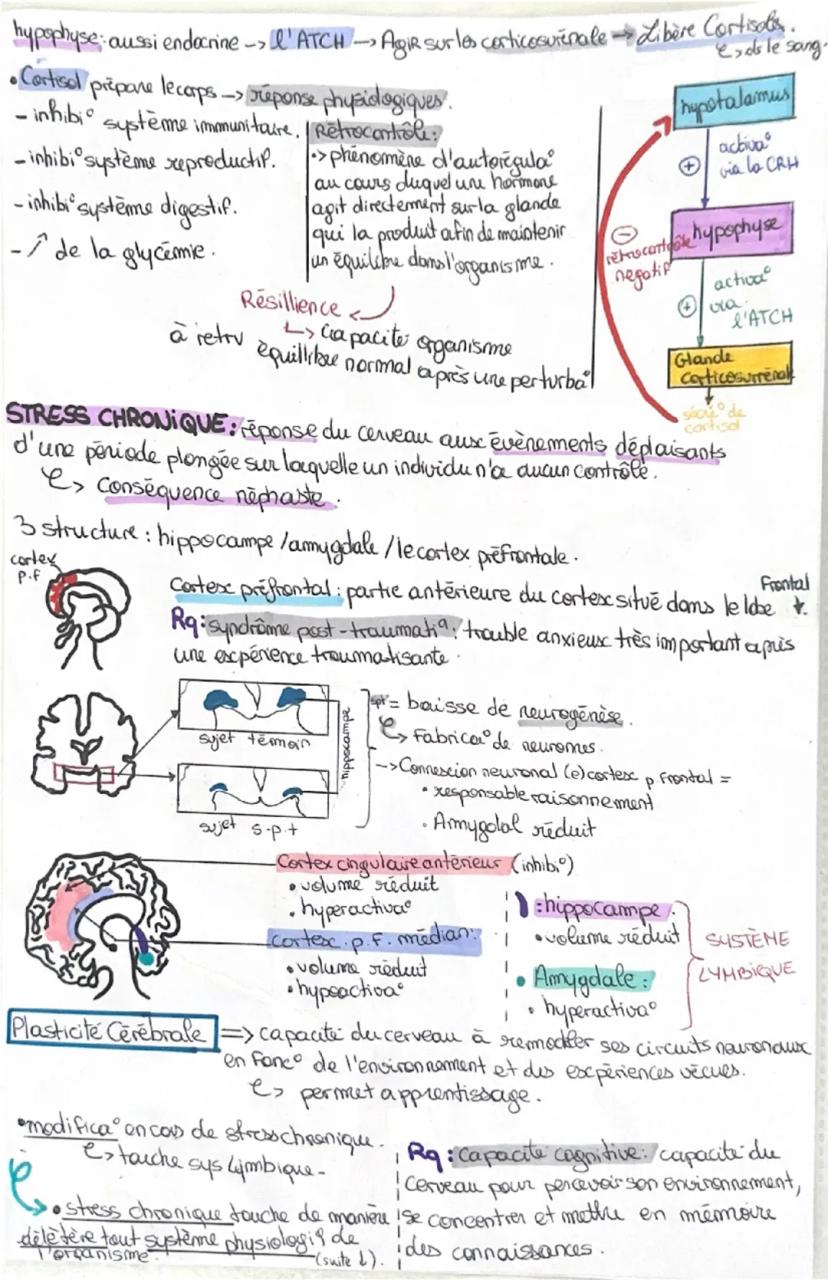 hypophyse: aussi endocrine -> l'ATCH -> Agir sur les corticosurénale -> Libère Cortisols.
↳ ds le sang.
• Cortisol prépare le corps -> réponse physiologiques.
- inhibi° système immunitaire.
- inhibi° système reproductif.
- inhibi° système digestif.
- ↗ de la glycémie.
Rétrocontrôle:
-> phénomène d'autorégula°
au cours duquel une hormone
agit directement sur la glande
qui la produit afin de maintenir
un équilibre dans l'organisme.
Résillience
↳ Capacité organisme
à retrv équilibre normal après une perturba°
hypotalamus
+ activa°
via la CRH
hypophyse
- rétrocontrôle
négatif
+ activa°
via
l'ATCH
Glande
corticosurrénale
sécré° de
cortisol
STRESS CHRONIQUE: réponse du cerveau aux évènements déplaisants
d'une période plongée sur laquelle un individu n'a aucun contrôle.
↳ Conséquence néphaste.
3 structure: hippocampe / amygdale / le cortex préfrontale.
cortex
p.f
Cortex préfrontal: partie antérieure du cortex situé dans le lobe Frontal
Rq: syndrôme post-traumatiq: trouble anxieux très important après
une expérience traumatisante.
sujet témoin
sujet s.p.t
hippocampe
spt = baisse de neurogénèse.
↳ fabrica° de neurones.
-> Connexion neuronal (e) cortex p. frontal =
• responsable raisonnement
• Amygdal réduit
Cortex cingulaire antérieur (inhibi°)
• volume réduit
• hyperactiva°
cortex p.f. médian:
• volume réduit
• hypoactiva°
: hippocampe:
• volume réduit
• Amygdale:
• hyperactiva°
SYSTÈME
LYMBIQUE
Plasticité Cérébrale => capacité du cerveau à remodeler ses circuits neuronaux
en fonc° de l'environnement et des expériences vécues.
↳ permet apprentissage.
• modifica° en cas de stress chronique.
↳ touche sys lymbique.
• stress chronique touche de manière
délétère tout système physiologiq de
l'organisme. (suite ↓)
Rq: Capacité cognitive: capacité du
cerveau pour percevoir son environnement,
se concentrer et mettre en mémoire
des connaissances.